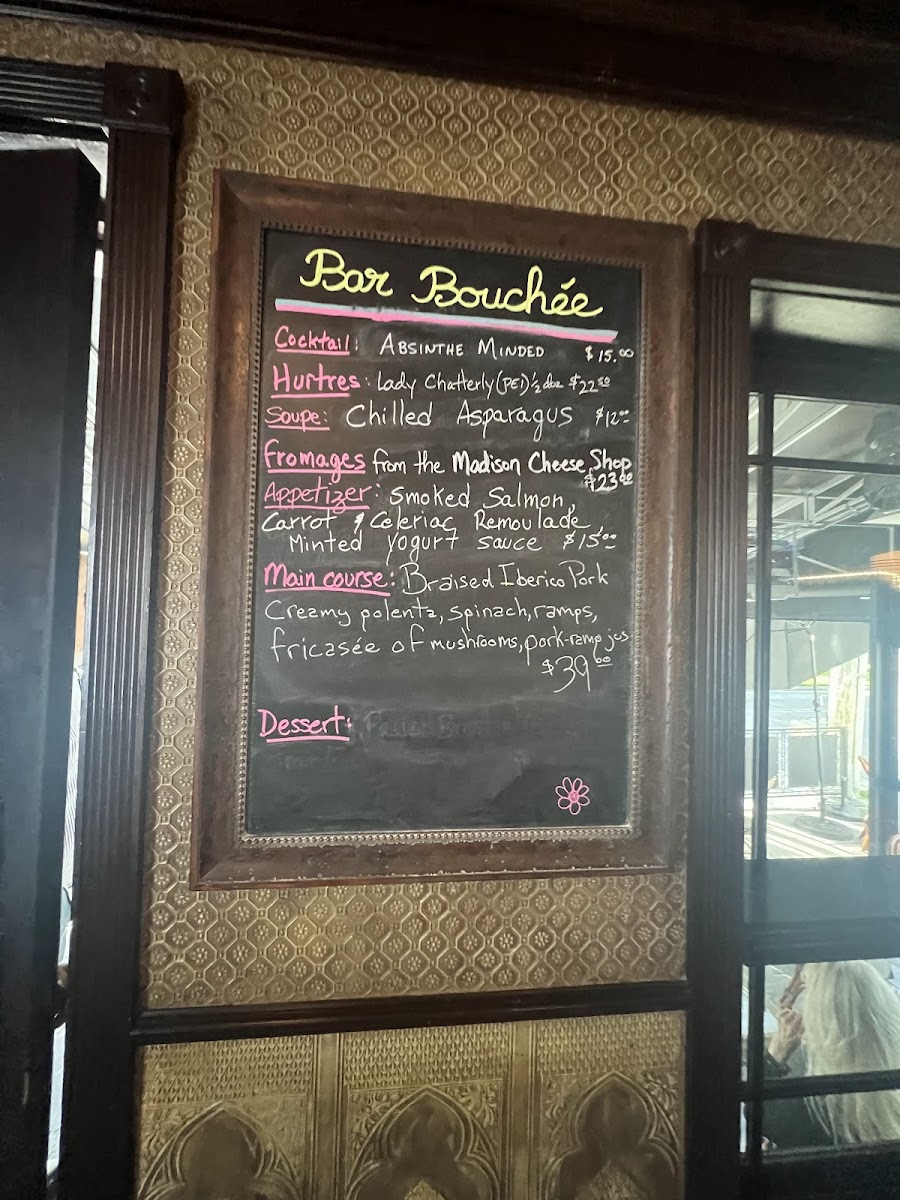 Bar Bouchée
Cocktail: ABSINTHE MINDED $15.00
Huîtres: Lady Chatterly (PEI) ½ doz $22.50
Soupe: Chilled Asparagus $12.00
Fromages from the Madison Cheese Shop
$23.00
Appetizer: Smoked Salmon,
Carrot & Celeriac Remoulade,
Minted yogurt sauce $15.00
Main course: Braised Iberico Pork
Creamy polenta, spinach, ramps,
fricasée of mushrooms, pork-ramp jus
$39.00
Dessert: